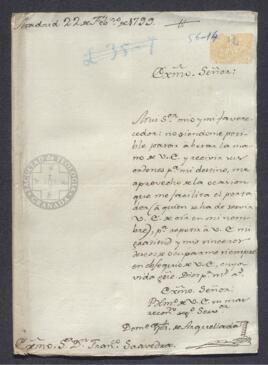 Madrid 22 de Feb.ro de 1799
56-14
Exmo. Señor:
Muy S.or mio y mi favore-
cedor: no siendome posi-
ble pasar a besar la mano
de V.E. y recivir sus
ordenes p.a mi destino, me
aprovecho de la ocasion
que me facilita el porta-
dor (a quien se ha de servir
V.E. de oir en mi nom-
bre), p.a repetir a V.E. mi
gratitud y mis sinceros
deseos de ocuparme siempre
en obsequio de V.E. cuya
vida gue. Dios m.s a.s
Exmo. Señor.
B.l.m. de V.E. su mas
recon.do ser.or
Exmo. S.r D.n Fran.co Saavedra